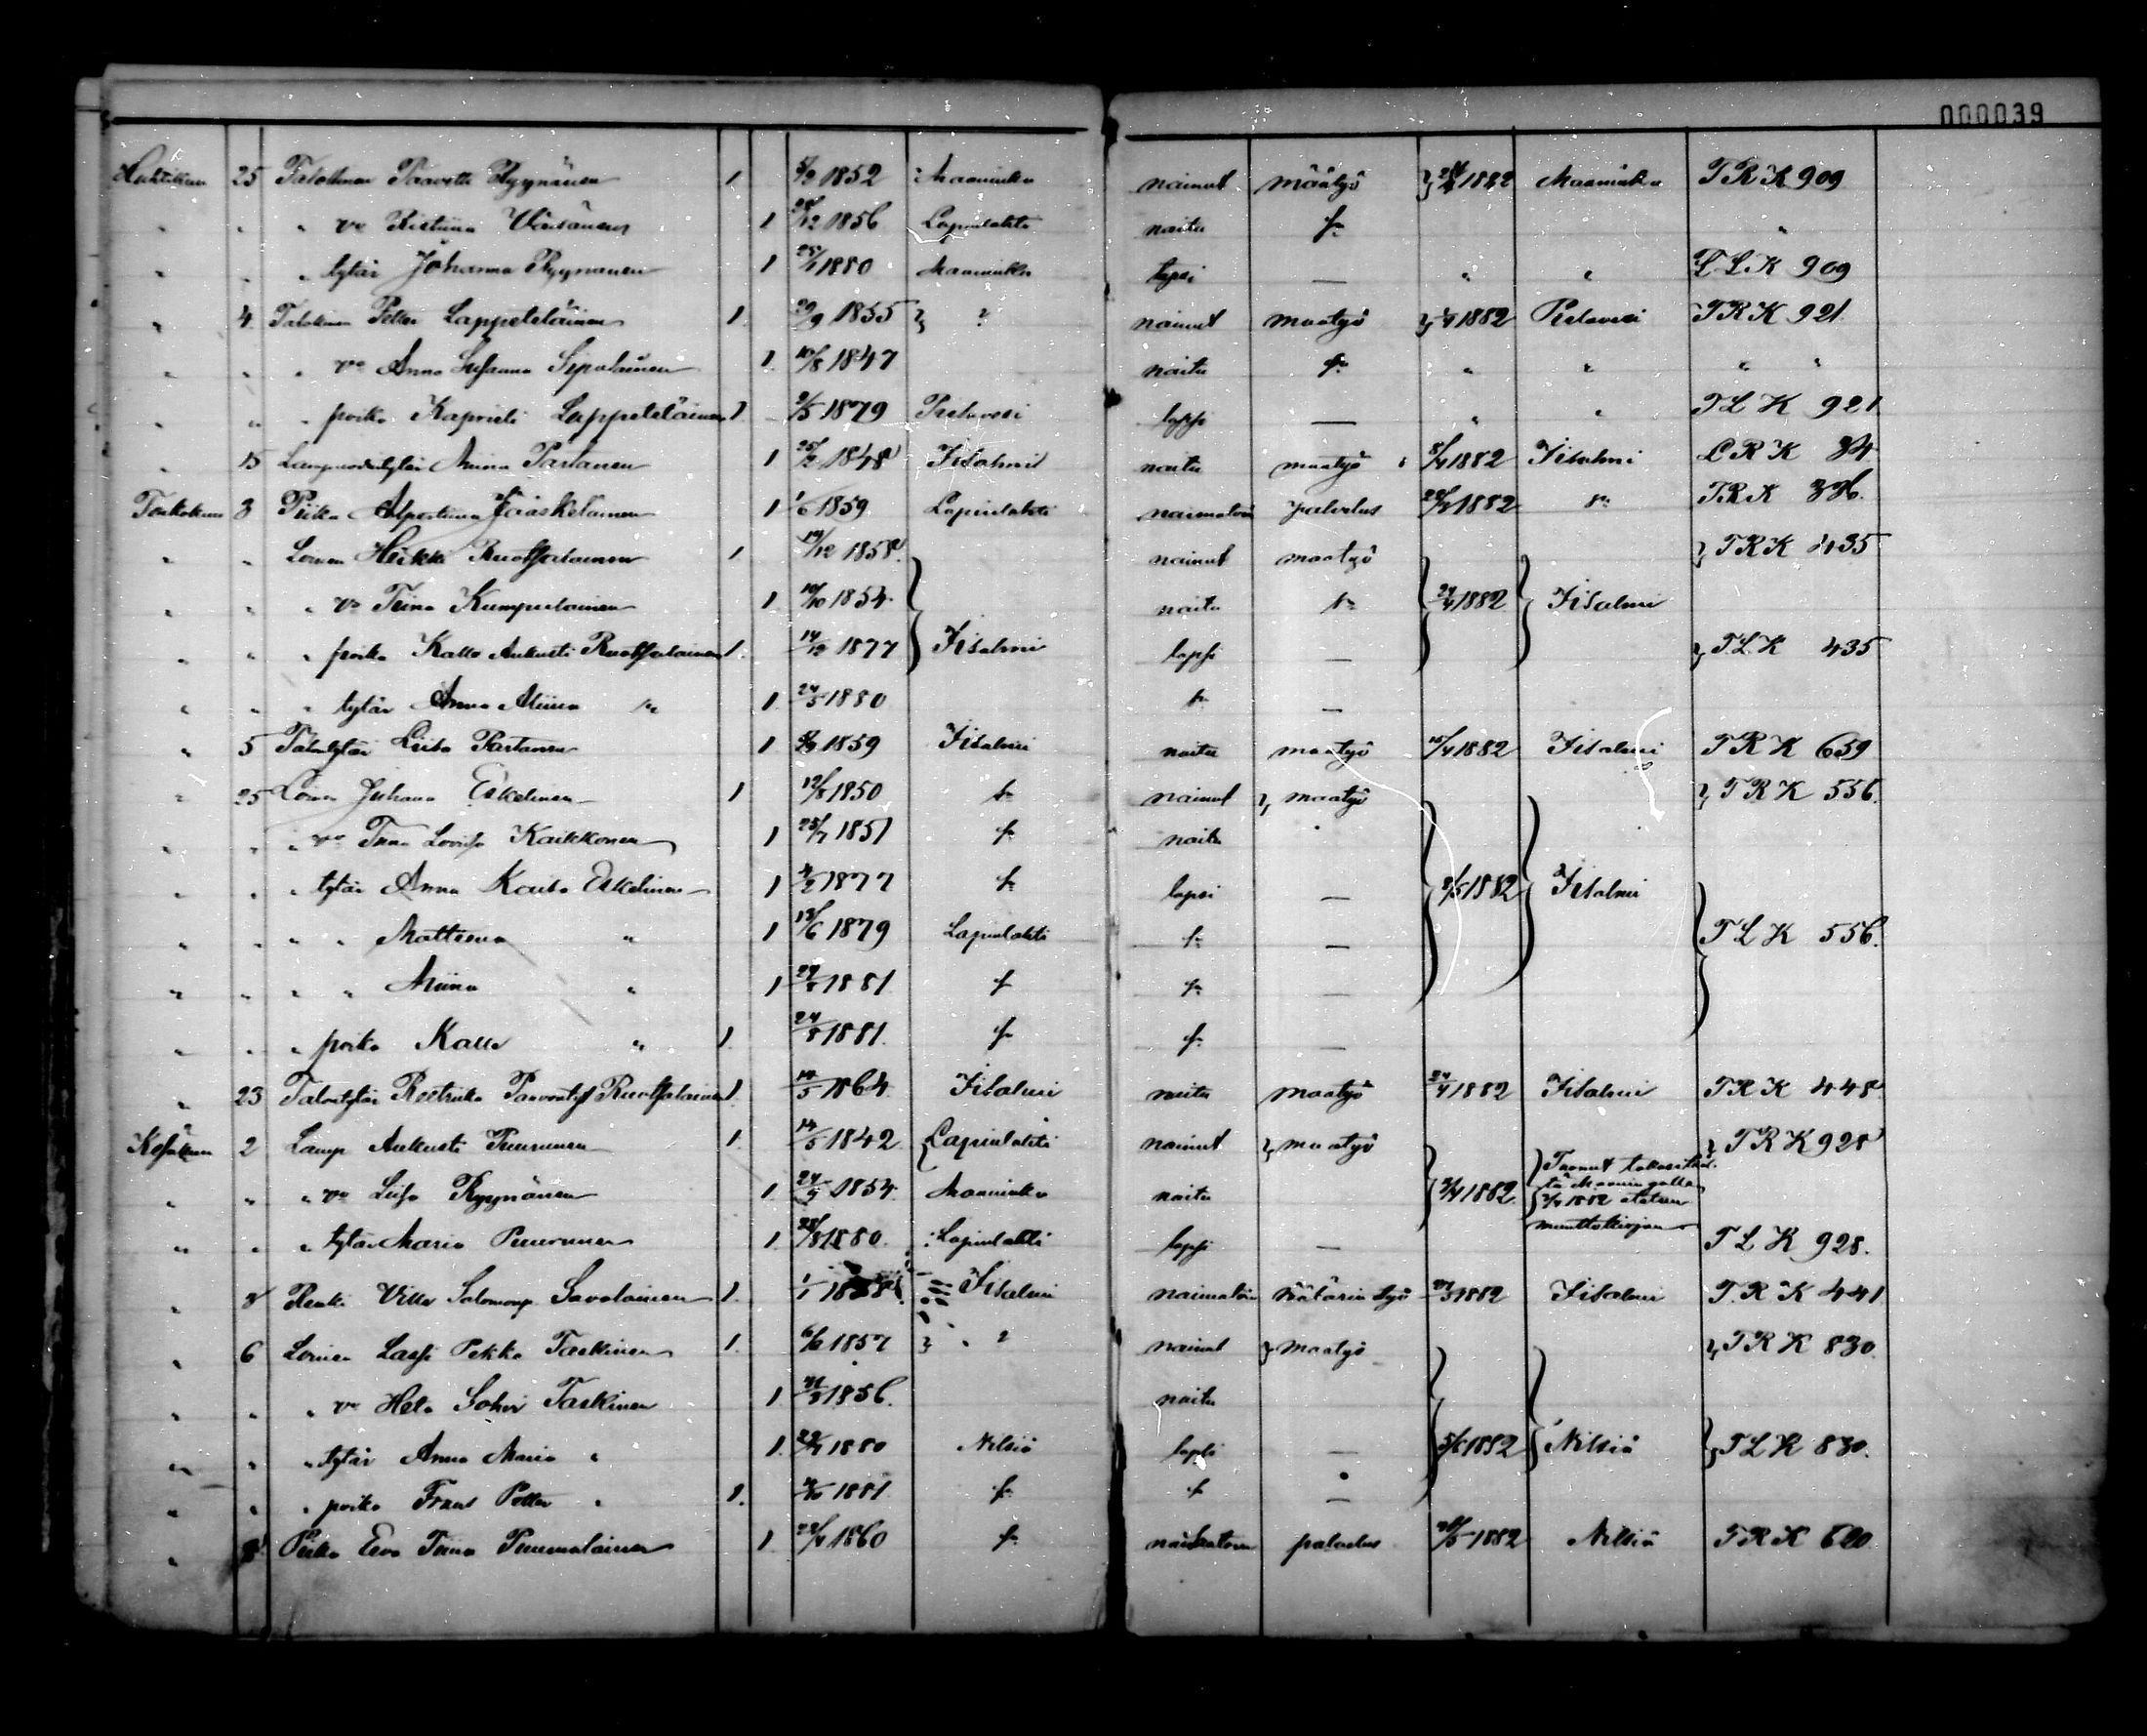 000039
Huhtikuu 25 Talollinen Paavetti Ryynänen 1 5/9 1852 Maaninka nainut määtyö 1882 Maaninka T R K 909
" " " vo Ristiina Väisänen 1 28/12 1856 Lapinlahti naitu so "
" " " tytär Johanna Ryynänen 1 25/4 1880 Maaninka lapsi — " " T L K 909
" 4 Talokmen Petter Lappeteläinen 1 29/9 1855 } ? nainut maatyö 1882 Pielavesi T R K 921
" " " vo Anna Susanna Sepolainen 1 10/8 1847 naitu so " " " "
" " " poika Kaprieli Lappeteläinen 1 9/5 1879 Pielavesi lapsi — " " T L K 921
" 15 Lampuodintytär Miina Partanen 1 25/2 1848 Iisalmi naitu maatyö 8/4 1882 Iisalmi L R K 34
Toukokuu 3 Piika Alpertiina Jääskeläinen 1 1/6 1859 Lapinlahti naimatoin palvelus 1882 so T R K 336.
" " Loinen Heikki Ruotsalainen 1 1858 nainut maatyö } T R K 435
" " " vo Tiina Kumpulainen 1 10/10 1854 naitu so 1882 Iisalmi
" " " poika Kalle Aukusti Ruotsalainen 1 14/12 1877 Iisalmi lapsi — } T L K 435
" " " tytär Anna Aliina so 1 24/5 1880 so —
" 5 Talontytär Liisa Partanen 1 1859 Iisalmi naitu maatyö 15/4 1882 Iisalmi T R K 659
" 25 Loinen Juhana Eskelinen 1 12/8 1850 so nainut } maatyö } T R K 556.
" " " vo Tiina Lovisa Kaikkonen 1 25/7 1851 so naitu
" " " tytär Anna Kaisa Eskelinen 1 4/2 1877 so lapsi — 9/5 1882 Iisalmi
" " " " Mattleena " 1 13/6 1879 Lapinlahti so — T L K 556.
" " " " Miina " 1 1881 so so —
" " " poika Kalle " 1 24/8 1881 so so —
" 23 Talontytär Reetrikka Paavontyt Ruotsalainen 1 14/5 1864 Iisalmi naitu maatyö 24/4 1882 Iisalmi T R K 448
Kesäkuu 2 Lamp Aukusti Puurunen 1 14/5 1842 Lapinlahti nainut } maatyö } T R K 928
" " " vo Liisa Ryynänen 1 1854 Maaninka naitu 3/4 1882 Tuonut takasi
Maaningalle
3/4 1882 otetun
muuttokirjan
" " " tytär Maria Puurunen 1 28/8 1880 Lapinlahti lapsi — T L K 928.
" 8 Renki Ville Salomonp Savolainen 1 1/1 Iisalmi naimatoin Räätärin työ 1882 Iisalmi T. R K 441
" 6 Loinen Lassi Pekka Taskinen 1 1857 } " ? nainut } maatyö } T R K 830.
" " " vo Hela Sohvi Taskinen 1 1856. naitu
" " " tytär Anna Maria " 1 1880 Nilsiä lapsi — 5/6 1882 Nilsiä } T L K 830.
" " " poika Frans Petter " 1. 1881 so so —
" Piika Eeva Tiina Puumalainen 1 1860 so naimatoin palvelus 1882 Nilsiä T R K 620